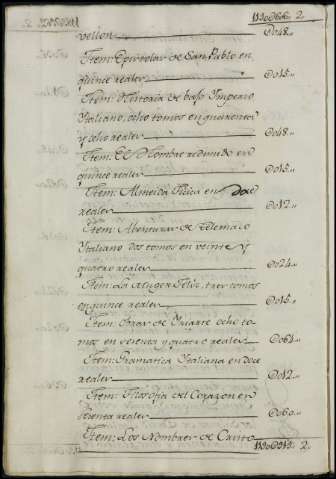 113U066.. 2.
vellon U048..
Item: Epistolas de San Pablo en
quince reales U015..
Item: Historia de bajo Imperio
Italiano, ocho tomos en quarenta
y ocho reales U048..
Item: El Hombre
quince reales U015..
Item: Almeida Fisica en doce
reales U012..
Item: Abenturas de Telemaco
Italiano dos tomos en veinte y
quatro reales U024..
Item La Muger Feliz, tres tomos
en quince reales U015..
Item: de Yriarte ocho to-
mos en sesenta y quatro reales U064..
Item: Gramatica Italiana en doce
reales U012..
Item: Filosofia del Corazon en
sesenta reales U060..
Item: Los Nombres de Cristo